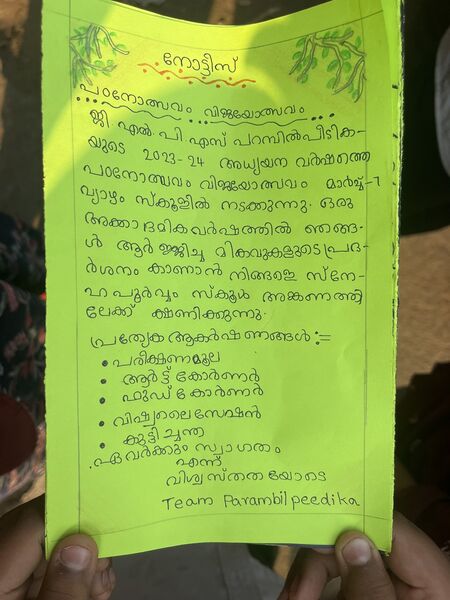 നോട്ടീസ്
പഠനോത്സവം വിജയോത്സവം
ജി. എൽ. പി. എസ് പറമ്പിൽപീടിക-
യുടെ 2023-24 അധ്യയന വർഷത്തെ
പഠനോത്സവം വിജയോത്സവം മാർച്ച്-7
വ്യാഴം സ്കൂളിൽ നടക്കുന്നു. ഒരു
അക്കാദമിക വർഷത്തിൽ ഞങ്ങ-
ൾ ആർജ്ജിച്ച മികവുകളുടെ പ്രദ-
ർശനം കാണാൻ നിങ്ങളെ സ്നേ-
ഹപൂർവ്വം സ്കൂൾ അങ്കണത്തി
ലേക്ക് ക്ഷണിക്കുന്നു.
പ്രത്യേക ആകർഷണങ്ങൾ :=
• പരീക്ഷണമൂല
• ആർട്ട് കോർണർ
• ഫുഡ് കോർണർ
• വിഷ്വലൈസേഷൻ
• കുട്ടിച്ചന്ത
ഏവർക്കും സ്വാഗതം
എന്ന്
വിശ്വസ്തതയോടെ
Team Parambilpeedika